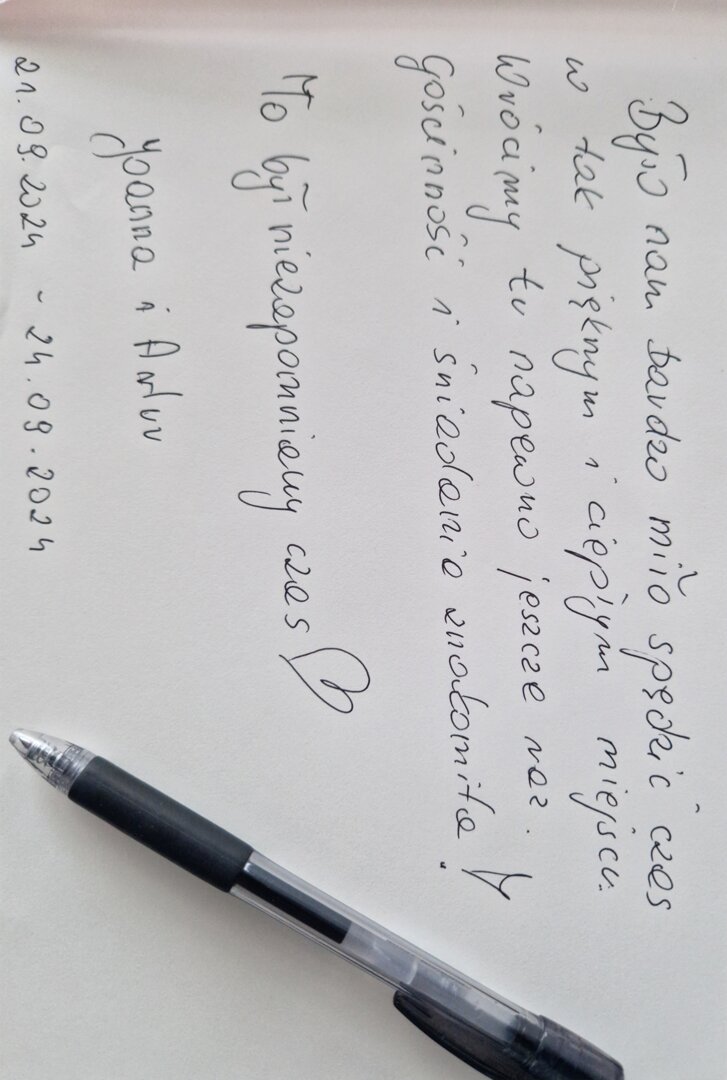 Było nam bardzo miło spędzić czas
w tak pięknym i ciepłym miejscu.
Wrócimy tu napewno jeszcze raz.
Gościnność i śniadania znakomita!
To był niezapomniany czas ♡
Joanna i Artur
21.09.2024 - 24.09.2024